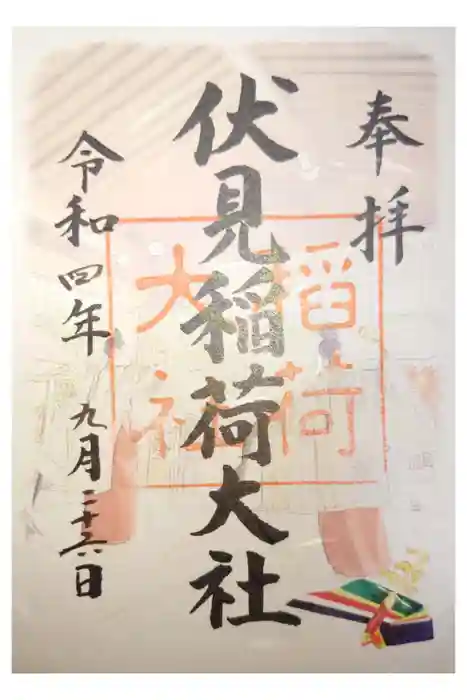 奉拝
伏見稲荷大社
稲荷
大社
令和四年 九月二十六日